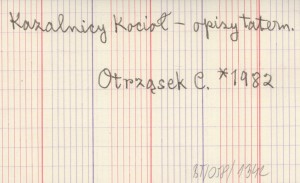 Kazalnicy Kocioł – opisy tatern.
Otrząsek C. *1982
BT/OTP/1342